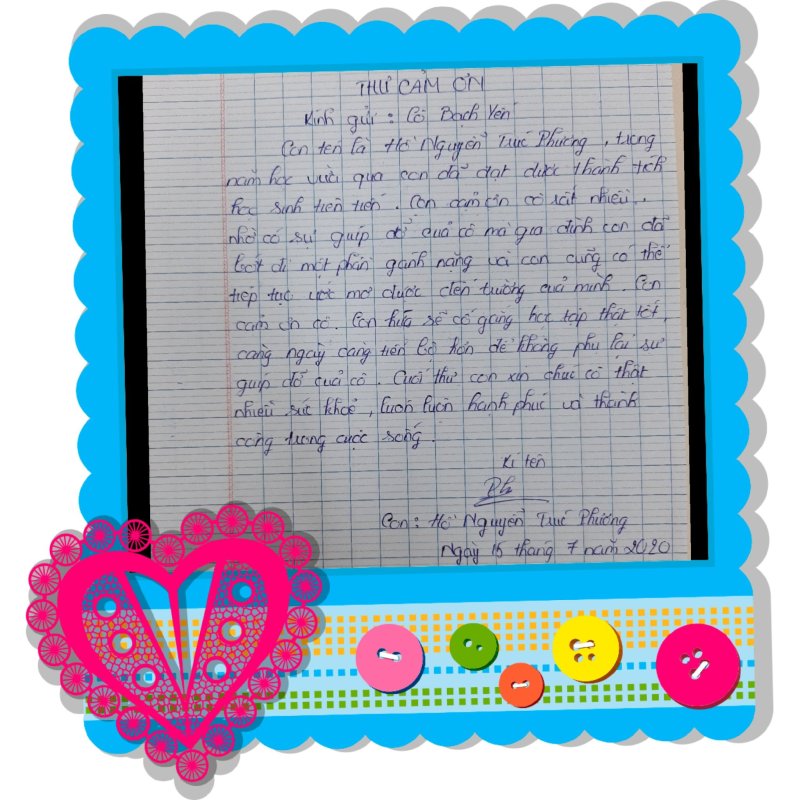 THƯ CẢM ƠN
Kính gửi : Cô Bạch Yến
Con tên là Hồ Nguyễn Trúc Phương, trong
năm học vừa qua con đã đạt được thành tích
học sinh tiên tiến. Con cảm ơn cô rất nhiều.
nhờ có sự giúp đỡ của cô mà gia đình con đã
bớt đi một phần gánh nặng và con cũng có thể
tiếp tục ước mơ được đến trường của mình. Con
cảm ơn cô. Con hứa sẽ cố gắng học tập thật tốt,
càng ngày càng tiến bộ hơn để không phụ lại sự
giúp đỡ của cô. Cuối thư con xin chúc cô thật
nhiều sức khoẻ, luôn luôn hạnh phúc và thành
công trong cuộc sống.
Kí tên
Ph
Con : Hồ Nguyễn Trúc Phương
Ngày 15 tháng 7 năm 2020